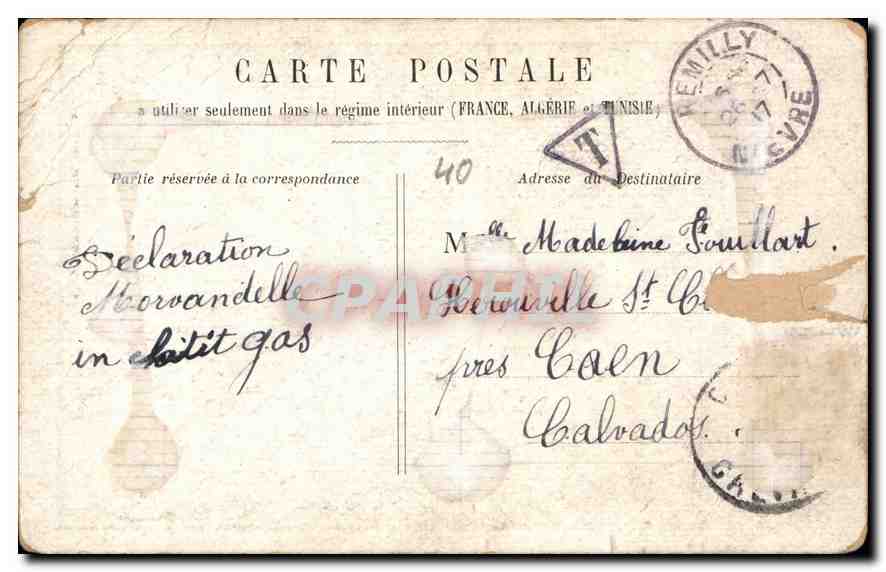 CARTE POSTALE
a utiliser seulement dans le régime intérieur (FRANCE, ALGÉRIE et TUNISIE)
REMILLY
26
17
NIEVRE
T
40
Partie réservée à la correspondance
Adresse du Destinataire
Déclaration
Morvandelle
in ptit gas
Melle. Madeleine Fouillart.
Herouville St Cl
près Caen
Calvados.
CPARAMA
CAEN